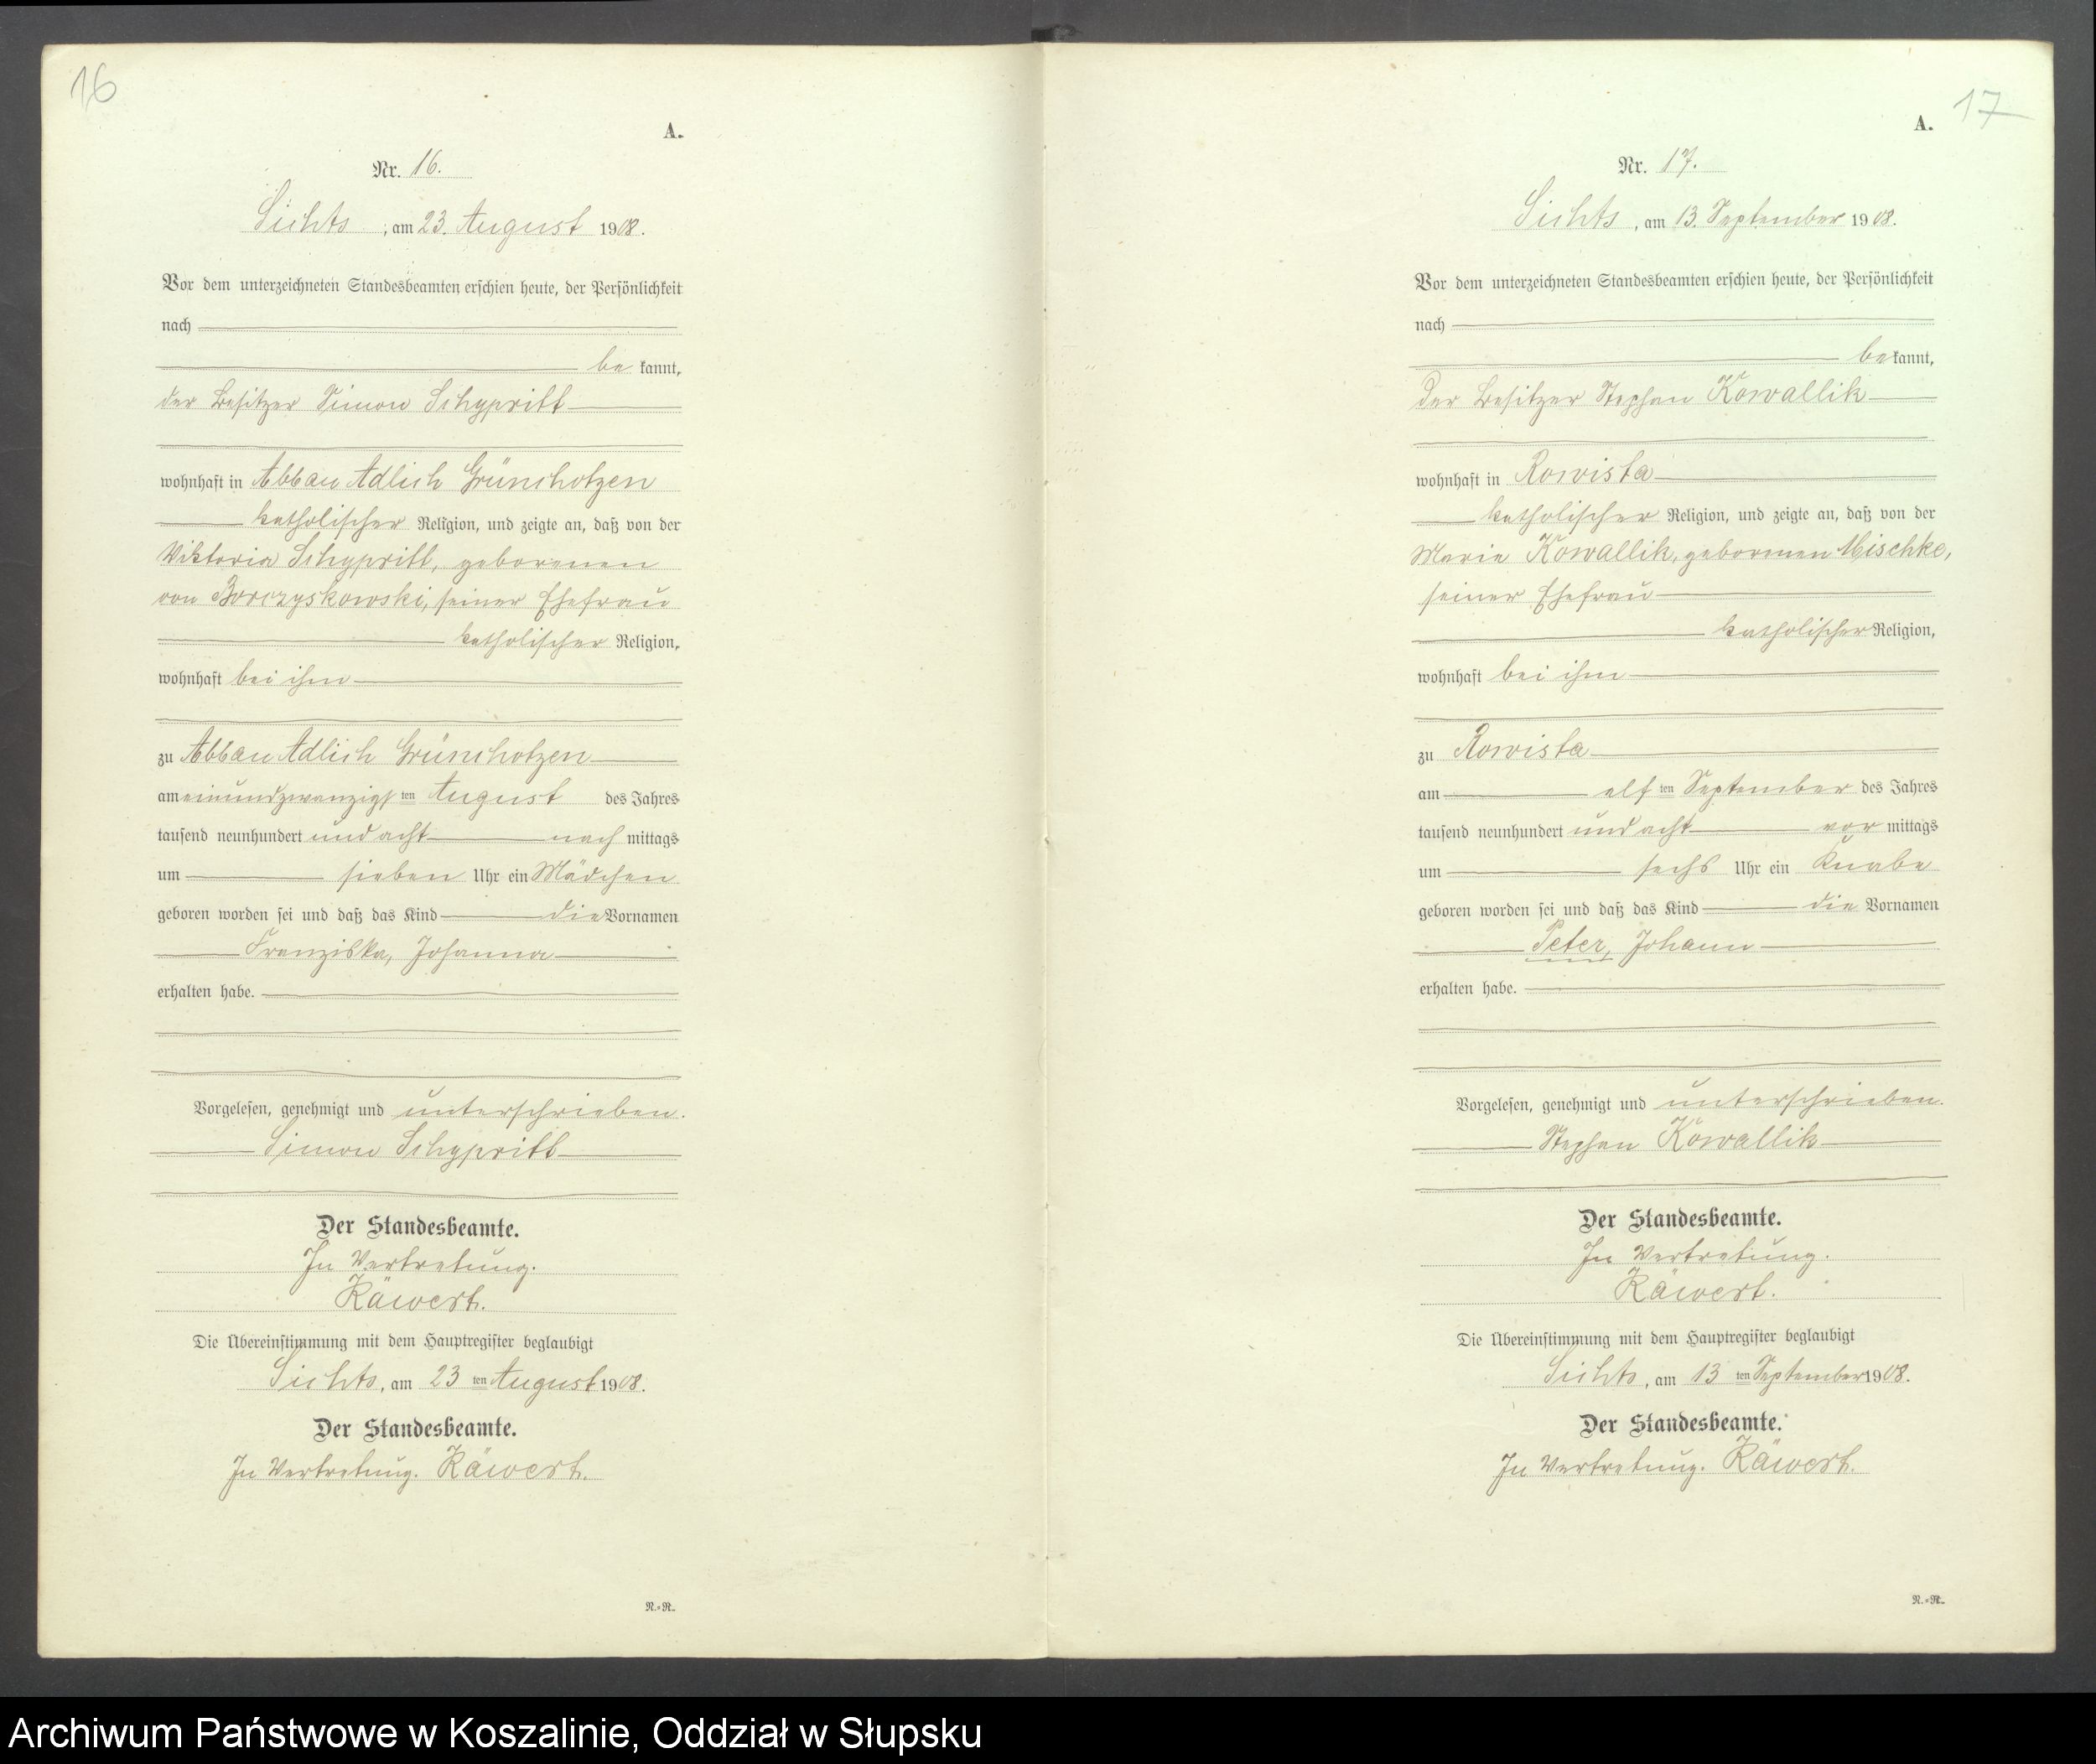 16
A.
Nr. 16.
Sichts, am 23. August 1908.
Vor dem unterzeichneten Standesbeamten erschien heute, der Persönlichkeit
nach
be kannt,
der Besitzer Simon Schypritt
wohnhaft in Abbau Adlich Grünchotzen
katholischer Religion, und zeigte an, daß von der
Viktoria Schypritt, geborenen
von Borczyskowski, seiner Ehefrau
katholischer Religion,
wohnhaft bei ihm
zu Abbau Adlich Grünchotzen
am einundzwanzigsten August des Jahres
tausend neunhundert und acht nach mittags
um sieben Uhr ein Mädchen
geboren worden sei und daß das Kind die Vornamen
Franziska, Johanna
erhalten habe.
Vorgelesen, genehmigt und unterschrieben.
Simon Schypritt
Der Standesbeamte.
In Vertretung.
Räwert.
Die Übereinstimmung mit dem Hauptregister beglaubigt
Sichts, am 23 ten August 1908.
Der Standesbeamte.
In Vertretung. Räwert.
N.=R.
17
A.
Nr. 17.
Sichts, am 13. September 1908.
Vor dem unterzeichneten Standesbeamten erschien heute, der Persönlichkeit
nach
be kannt,
der Besitzer Stephan Kowallik
wohnhaft in Rowista
katholischer Religion, und zeigte an, daß von der
Marie Kowallik, geborenen Mischke,
seiner Ehefrau
katholischer Religion,
wohnhaft bei ihm
zu Rowista
am elf ten September des Jahres
tausend neunhundert und acht vor mittags
um sechs Uhr ein Knabe
geboren worden sei und daß das Kind die Vornamen
Peter, Johann
erhalten habe.
Vorgelesen, genehmigt und unterschrieben.
Stephan Kowallik
Der Standesbeamte.
In Vertretung.
Räwert.
Die Übereinstimmung mit dem Hauptregister beglaubigt
Sichts, am 13 ten September 1908.
Der Standesbeamte.
In Vertretung. Räwert.
N.=R.
Archiwum Państwowe w Koszalinie, Oddział w Słupsku